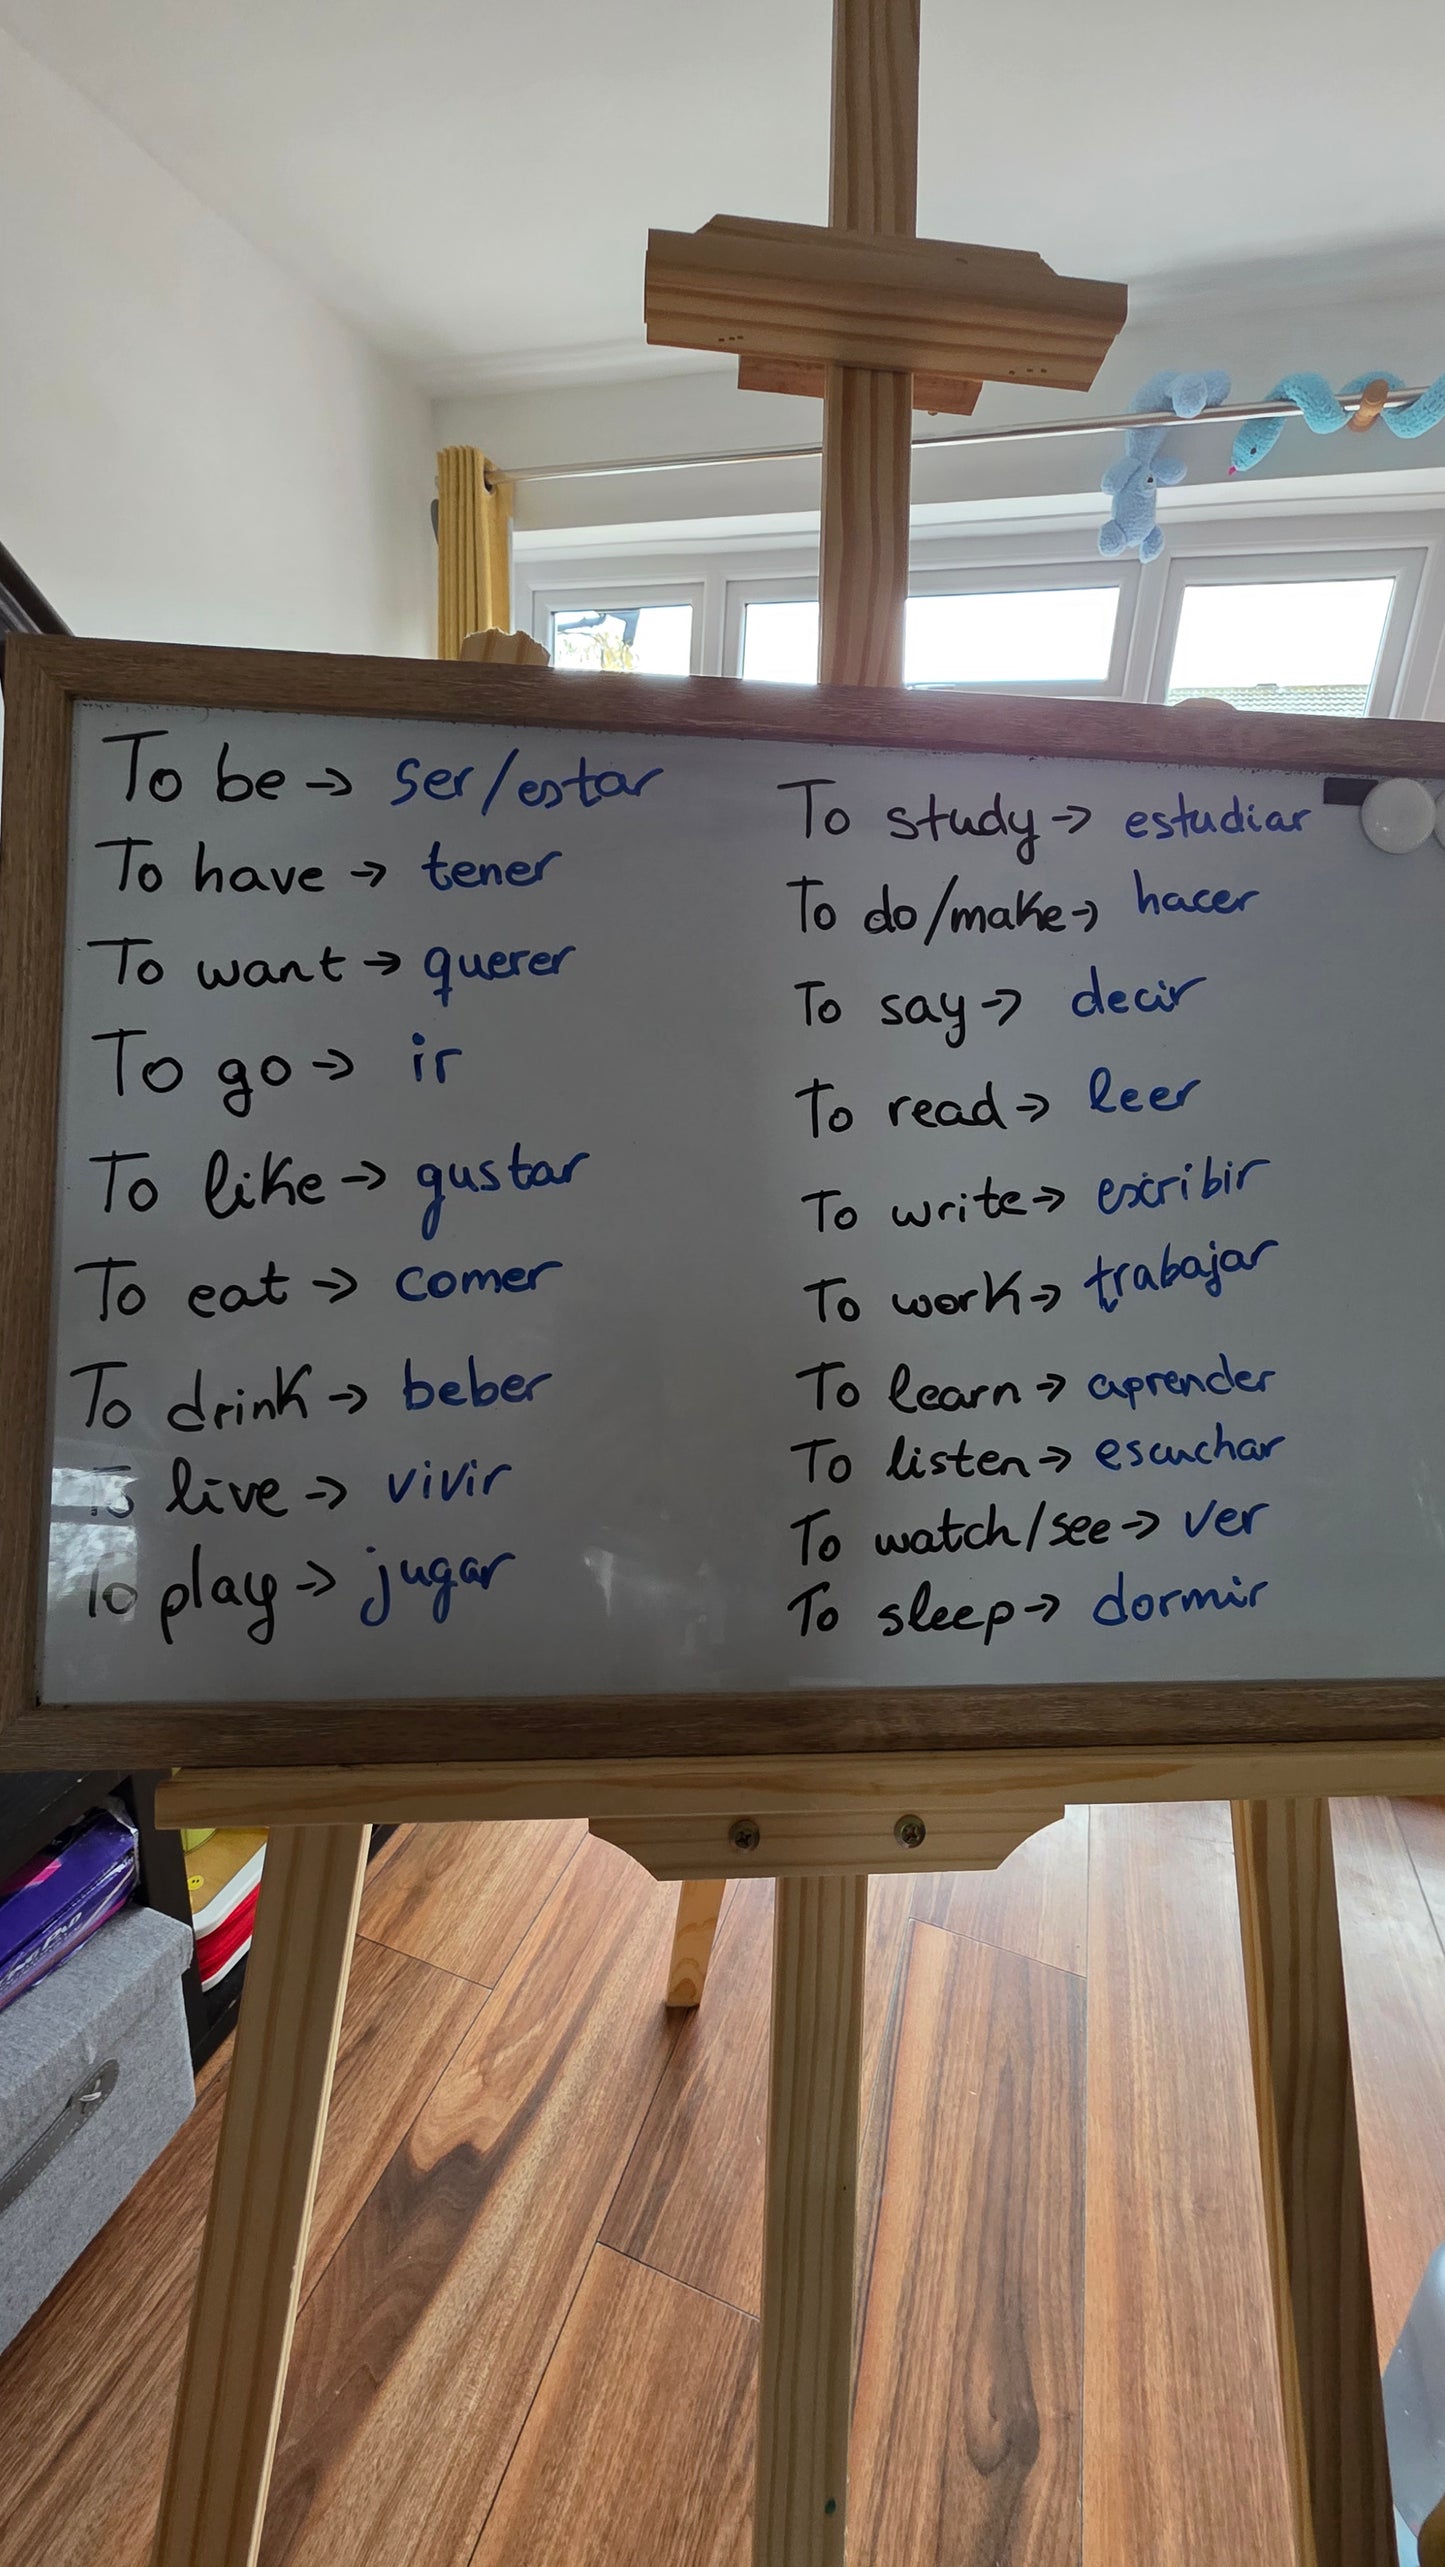 To be → ser/estar
To have → tener
To want → querer
To go → ir
To like → gustar
To eat → comer
To drink → beber
To live → vivir
To play → jugar
To study → estudiar
To do/make → hacer
To say → decir
To read → leer
To write → escribir
To work → trabajar
To learn → aprender
To listen → escuchar
To watch/see → ver
To sleep → dormir